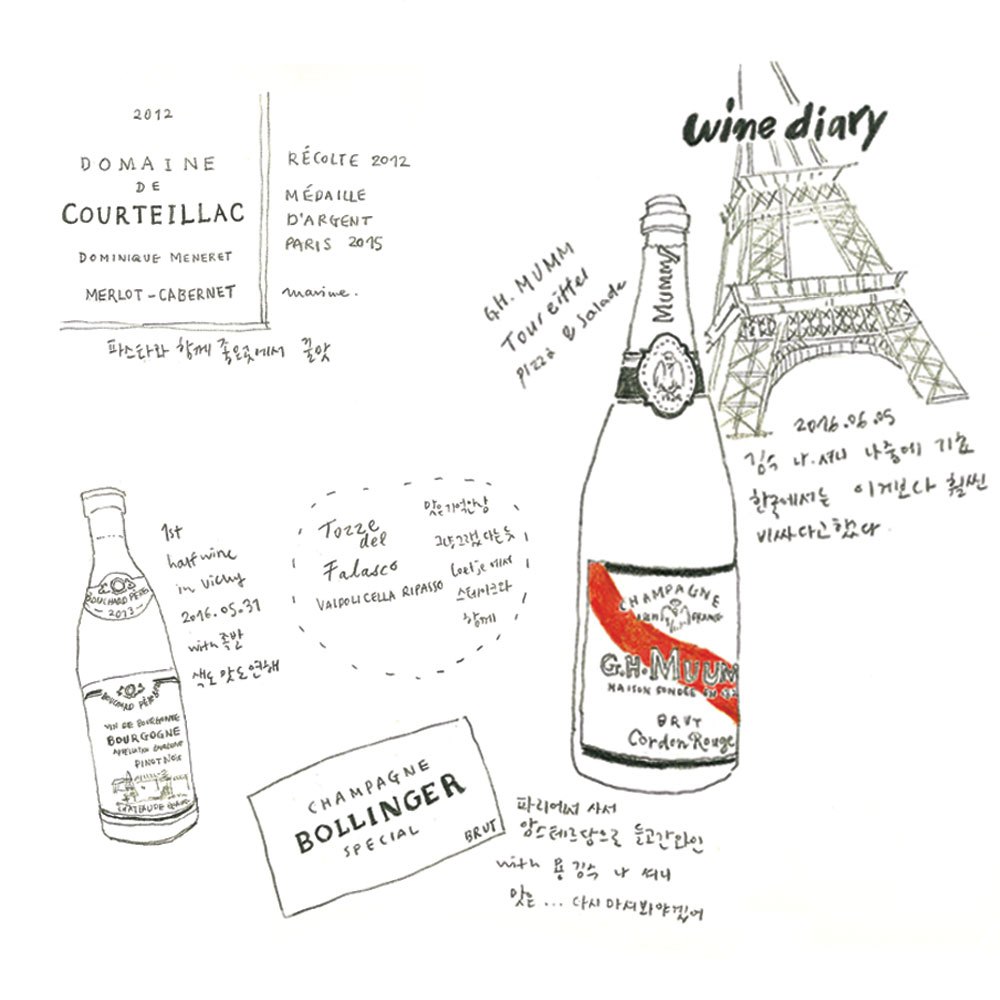 wine diary
2012
DOMAINE
DE
COURTEILLAC
DOMINIQUE MENERET
MERLOT-CABERNET
RÉCOLTE 2012
MÉDAILLE
D'ARGENT
PARIS 2015
marine.
파스타와 함께 좋은곳에서 꿀맛
G.H. MUMM
Tour eiffel
pizza & salade
Mumm
CHAMPAGNE
FRANCE
G.H.MUUM
MAISON FONDÉE EN
BRUT
Cordon Rouge
2016.06.05
김수 나.셔니 나중에 기효
한국에서는 이거보다 훨씬
비싸다고했다.
1st
half wine
in Vichy
2016.05.31
with 족발
색도 맛도 연해
BOUCHARD PÈRE
2013
BOUCHARD PÈRE
VIN DE BOURGOGNE
BOURGOGNE
APPELLATION
PINOT NOIR
Tozze
del
Falasco
VALPOLICELLA RIPASSO
맛은 기억안남
그냥그랬다는듯
loetje에서
스테이크와
함께
CHAMPAGNE
BOLLINGER
SPECIAL
BRUT
파리에서 사서
암스테르담으로 들고간와인
with 용 김수 나 셔니
맛은... 다시 마셔봐야겠어